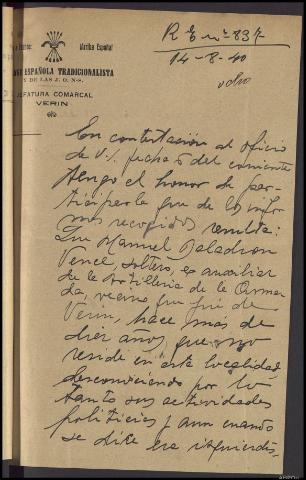 R E nº 837
14-8-40
ocho
Arriba España!
ESPAÑOLA TRADICIONALISTA
Y DE LAS J. O. N-S.
JEFATURA COMARCAL
VERIN
En contestación al oficio
de V.S. fecha 6 del corriente
tengo el honor de par-
ticiparle que de los infor-
mes recogidos resulta:
Que Manuel Baladron
Vence, soltero, es auxiliar
de la Artilleria de la Arma-
da, vecino que fué de
Verin, hace más de
diez años que no
reside en esta localidad
desconociendo por lo
tanto sus actividades
politicas y aun cuando
se dice era izquierdis-